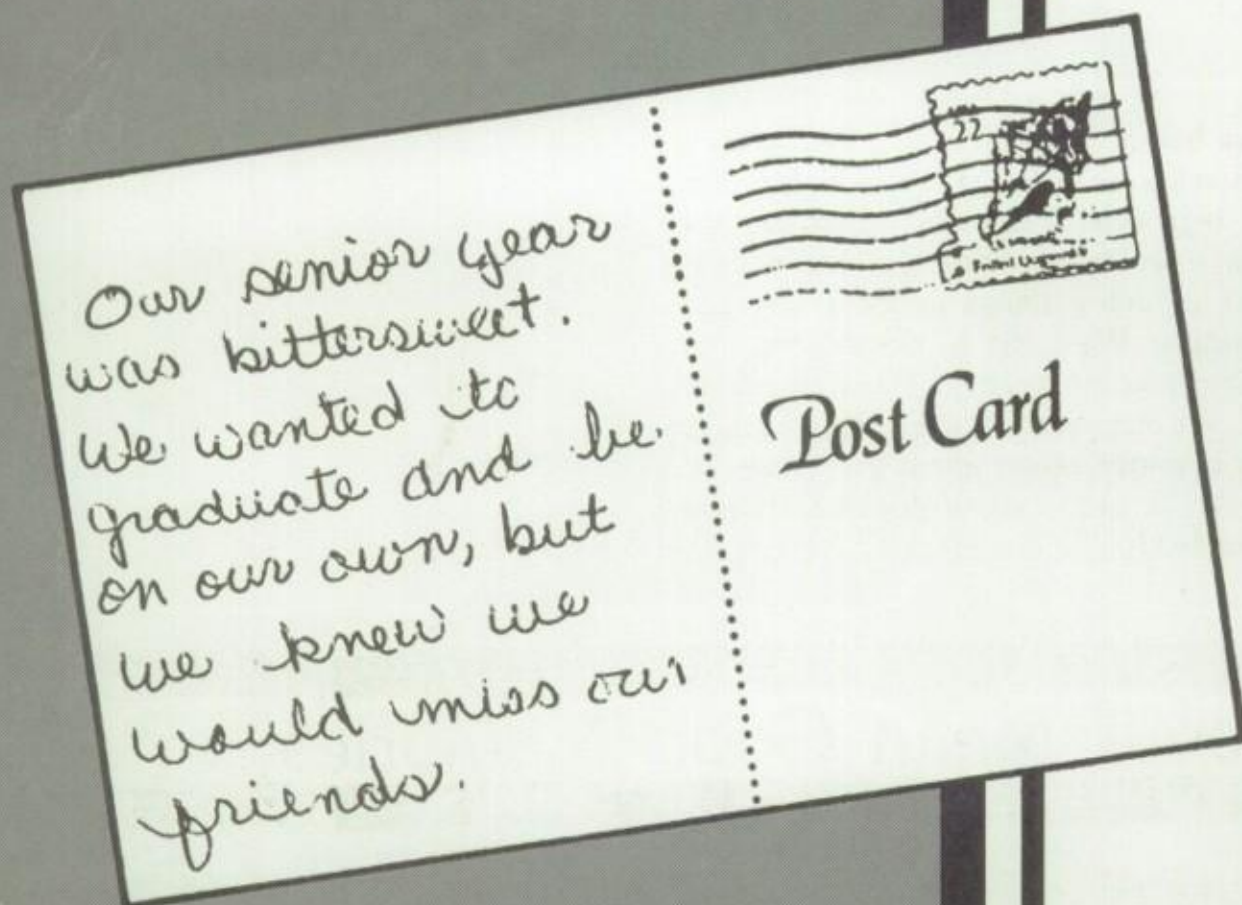 Our senior year
was bittersweet.
We wanted to
graduate and be
on our own, but
we knew we
would miss our
friends.
22
Post Card